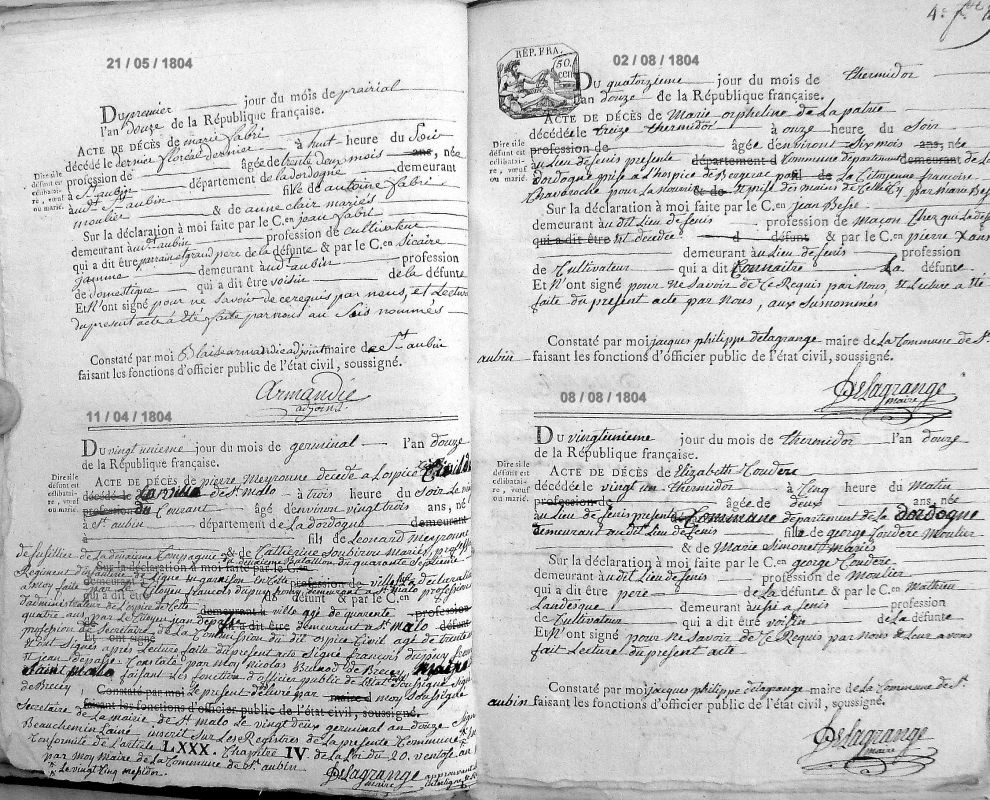 21 / 05 / 1804
Du premier jour du mois de prairial
l'an douze de la République française.
ACTE DE DÉCÈS de marie fabri
décédé le dernier floréal dernier à huit heure du Soir
profession de âgée de trente deux mois ans, née
à St aubin département de la dordogne demeurant
audt St aubin fille de antoine fabri
moulier & de anne clair mariés
Sur la déclaration à moi faite par le C.en jean fabri
demeurant audt aubin profession de cultivateur
qui a dit être parrain et grand pere de la défunte & par le C.en Sicaire
jamme demeurant audt aubin profession
de domestique qui a dit être voisin de la défunte
Et N'ont signé pour ne Savoir de ce requis par nous, et Lecture
du present acte a été faite par nous au Susnommés
Constaté par moi Blaise armandie adjoint maire de St aubin
faisant les fonctions d'officier public de l'état civil, soussigné.
Armandie
adjoint
Dire si le
défunt est
célibatai-
re, veuf
ou marié.
11 / 04 / 1804
Du vingt unieme jour du mois de germinal l'an douze
de la République française.
ACTE DE DÉCÈS de pierre Meyronne décédé a Lospice Civil de
décédé le La ville de St malo à trois heure du Soir Le vingt
profession du Courant âgé denviron vingt trois ans, né
à St aubin département de La dordogne demeurant
à fils de Leonard meyronne
& de Catherine Soubirou mariés, profession
de fusillier de La deuxieme Compagnie deuxieme Bataillon du quarante Septieme
Sur la déclaration à moi faite par le C.en
Regiment d'infanterie de Ligne en garnison en Cette ville, Sur la déclaration
demeurant profession de
a moy faite par Le Citoyen francois dupuy demeurant a St malo profession
qui a dit être du défunt & par le C.en
d'administrateur de Lospice de Cette ville agé de quarante
demeurant à profession
quatre ans, par Le Citoyen jean depasse demeurant a St malo
qui a dit être défunt
profession de Secretaire de La Commission du dit ospice Civil agé de trente
Et ont signé
N'ont Signés après Lecture faite du present acte Signé francois dupuy
et jean depasse. Constaté par moy Nicolas Brunod de Brecey maire
Saint malo faisant les fonctions d'officier public de L'Etat Soussigné Signé
de Brecey
Constaté par moi Le present délivré par maire d moy Soussigné
faisant les fonctions d'officier public de l'état civil, soussigné.
Secretaire de La mairie de St malo Le vingt deux germinal an douze Signé
Beauchemin Lainé inscrit Sur Les Registres de La presente Commune
Conformité de L'article LXXX. Chapitre IV. de La Loi du 20. ventose an
par moy maire de La Commune de St aubin
Le vingt Cinq messidor.
Delagrange
maire
Dire si le
défunt est
célibatai-
re, veuf
ou marié.
4e
RÉP. FRA.
50.
cen
02 / 08 / 1804
Du quatorzieme jour du mois de thermidor
l'an douze de la République française.
ACTE DE DÉCÈS de Marie orpheline de La patrie
décédée le treize thermidor à onze heure du Soir
profession de âgée denviront Six mois ans, née
au Lieu de fenis presente département d Commune département demeurant de La
dordogne prise a l'hospice de Bergerac par La Citoyenne francoise
& de
Sur la déclaration à moi faite par le C.en jean Besse
demeurant au dit Lieu de fenis profession de maçon Chez qui La dite
qui a dit être est decedée d défunt & par le C.en pierre
demeurant au Lieu de fenis profession
de Cultivateur qui a dit Connaitre La défunte.
Et N'ont signé pour ne Savoir de Ce Requis par nous, et Lecture a été
faite du present acte par Nous, aux Susnommés
Constaté par moi jacques philippe delagrange maire de La Commune de St.
aubin faisant les fonctions d'officier public de l'état civil, soussigné.
Delagrange
maire
Dire si le
défunt est
célibatai-
re, veuf
ou marié.
08 / 08 / 1804
Du vingtunieme jour du mois de thermidor l'an douze
de la République française.
ACTE DE DÉCÈS de Elizabeth Coudere
décédée le vingt un thermidor à Cinq heure du Matin
profession de âgée de deux ans, née
au Lieu de fenis presente Commune département de La dordogne
demeurant au dit Lieu de fenis fille de george Coudere Moulier
& de Marie Simonet mariés
Sur la déclaration à moi faite par le C.en george Coudere
demeurant à u dit Lieu de fenis profession de Moulier
qui a dit être pere de La défunte & par le C.en Mathieu
Landesque demeurant aussi a fenis profession
de Cultivateur qui a dit être voisin de La défunte
Et N'ont signé pour ne Savoir de Ce Requis par nous et Leur avons
fait Lecture du present acte
Constaté par moi jacques philippe delagrange maire de La Commune de St.
aubin faisant les fonctions d'officier public de l'état civil, soussigné.
Delagrange
maire
Dire si le
défunt est
célibatai-
re, veuf
ou marié.